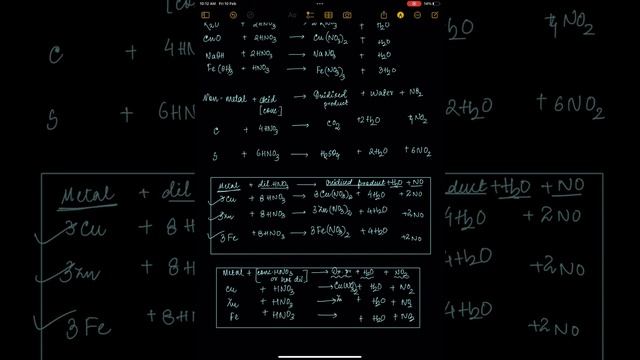 10:12 AM Fri 10 Feb
14%
CuO + 2HNO3 → Cu(NO3)2 + H2O
NaOH + 2HNO3 → NaNO3 + H2O
Fe(OH)3 + HNO3 → Fe(NO3)3 + 3H2O
Non-metal + acid [conc] → Oxidised product + Water + NO2
C + 4HNO3 → CO2 + 2H2O + 4NO2
S + 6HNO3 → H2SO4 + 2H2O + 6NO2
Metal + dil HNO3 → Oxidised product + H2O + NO
3Cu + 8HNO3 → 3Cu(NO3)2 + 4H2O + 2NO
3Zn + 8HNO3 → 3Zn(NO3)2 + 4H2O + 2NO
3Fe + 8HNO3 → 3Fe(NO3)2 + 4H2O + 2NO
Metal + [conc HNO3 or hot dil] → + H2O + NO2
Cu + HNO3 → Cu(NO3)2 + H2O + NO2
Zn + HNO3 → Zn + H2O + NO2
Fe + HNO3 → + H2O + NO2